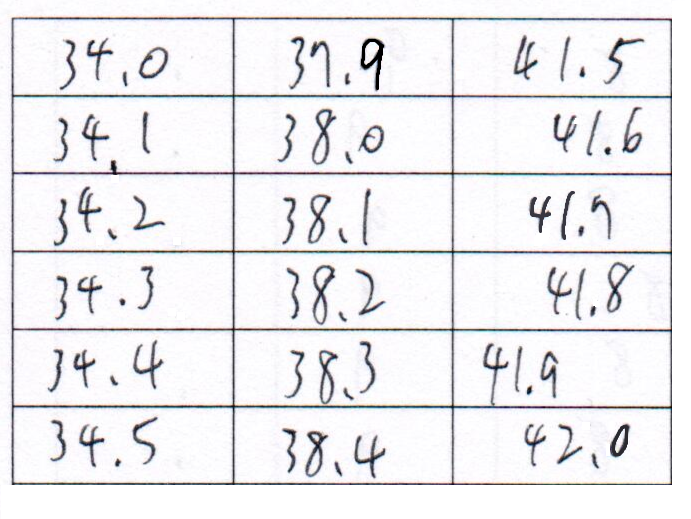 34.0 37.9 41.5
34.1 38.0 41.6
34.2 38.1 41.7
34.3 38.2 41.8
34.4 38.3 41.9
34.5 38.4 42.0